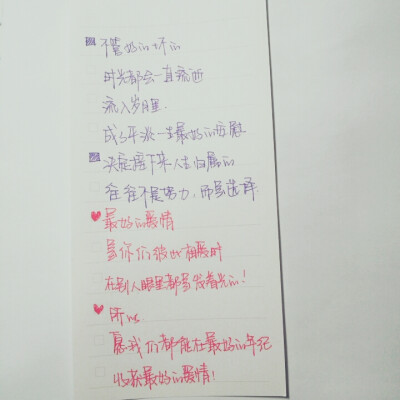 不管好的坏的
时光都会一直流逝
流入岁月里
成了年派一生最好的
决定接下来人生归属的
往往不是努力,而是选择
最好的爱情
是你们彼此相爱时
在别人眼里都是发着光的!
所以
愿我们都能在最好的年纪
收获最好的爱情!